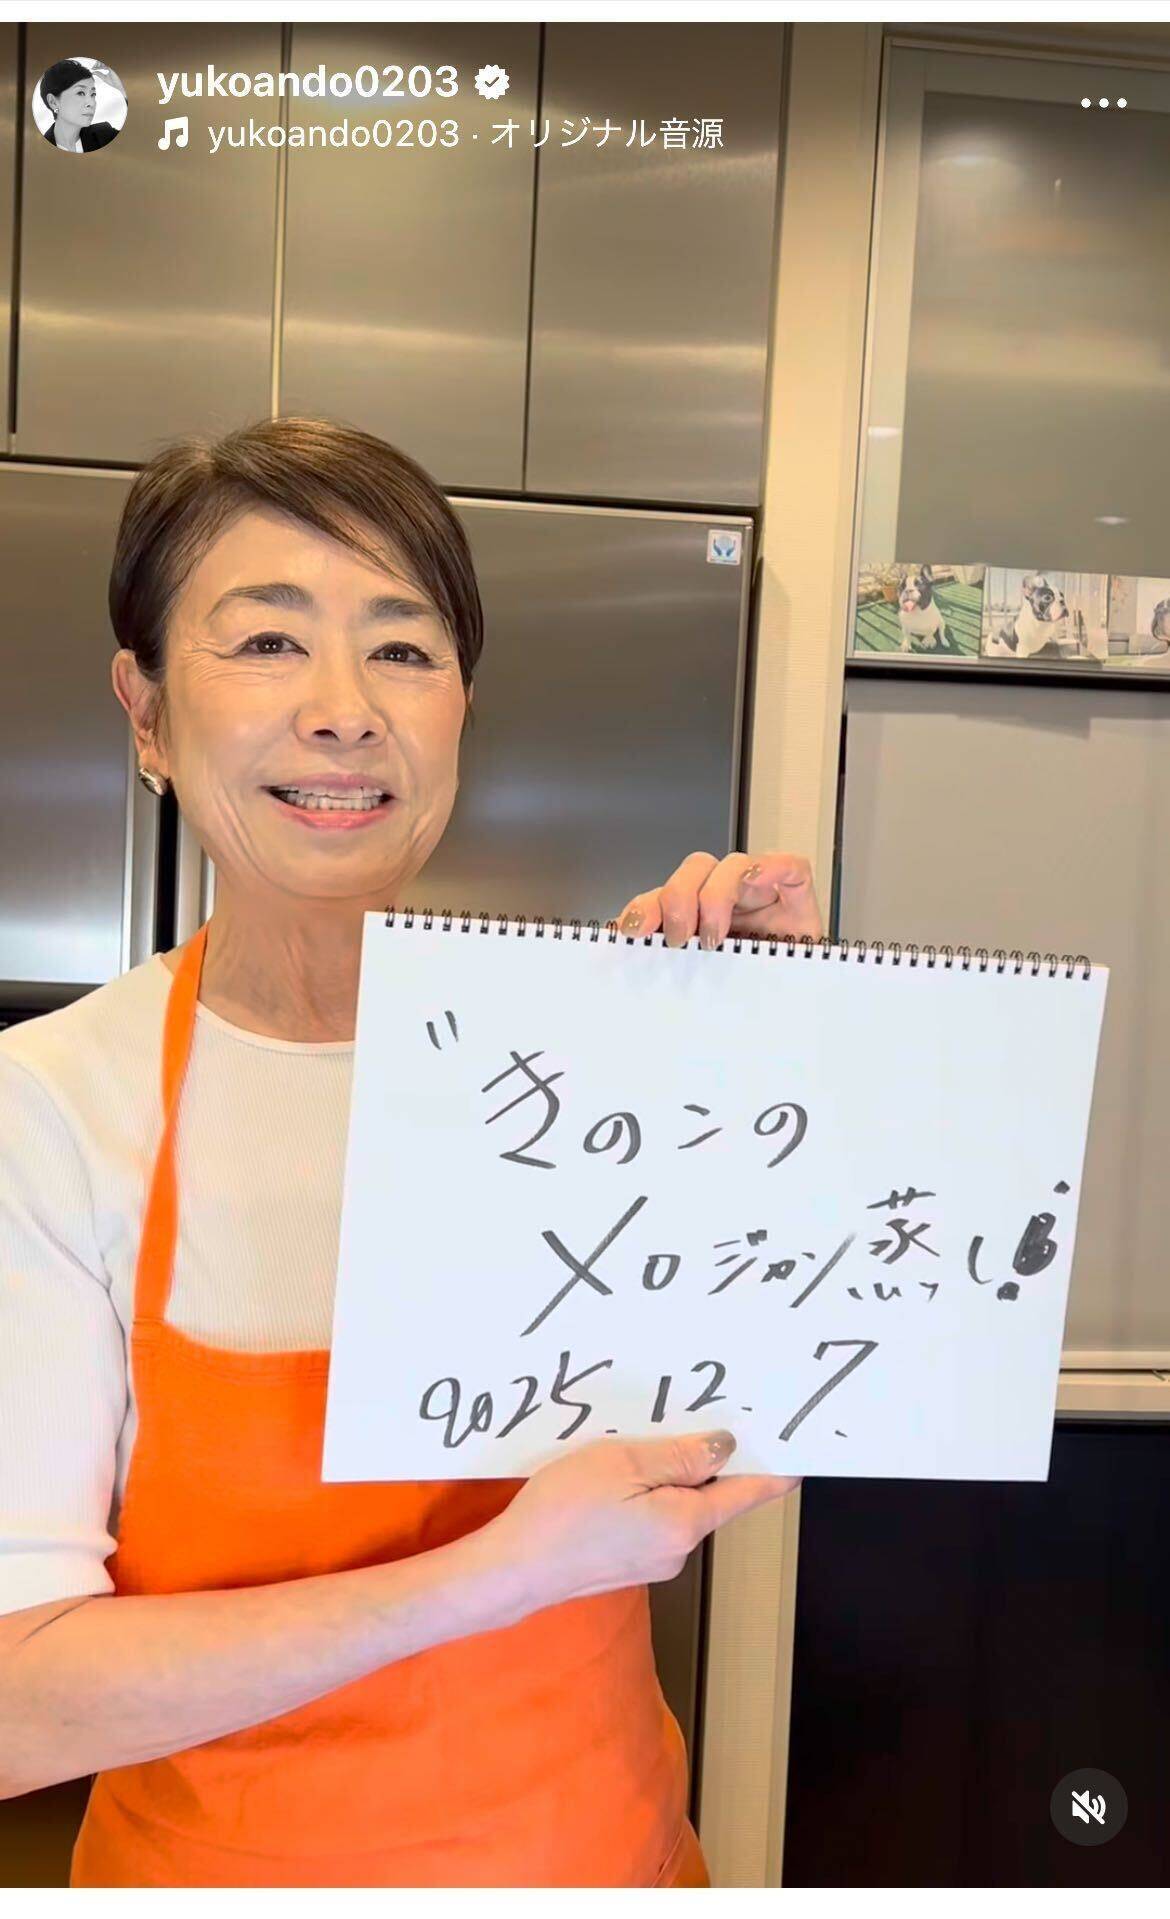 yukoando0203
yukoando0203 · オリジナル音源
"きのこの
メロジカン蒸し!
2025.12.7.